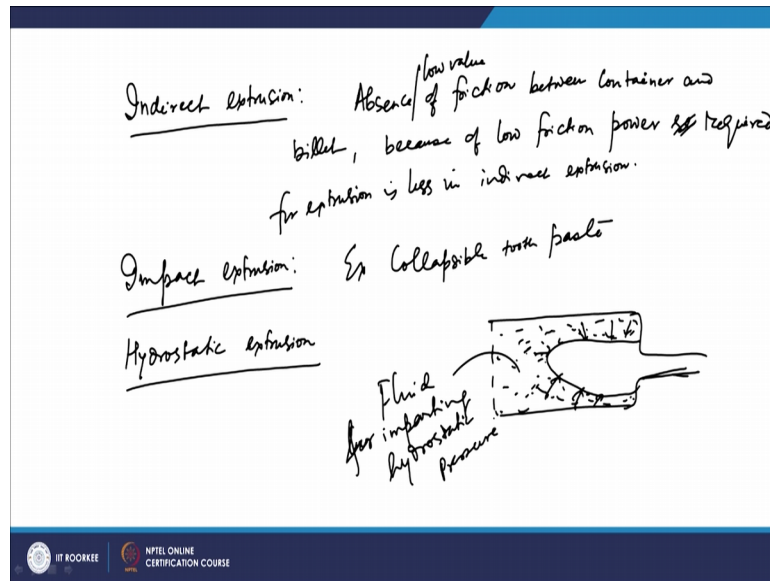 Indirect extrusion: Absence/low value of friction between container and
billet, because of low friction power required
for extrusion is less in indirect extrusion.
Impact extrusion: Ex Collapsible tooth paste
Hydrostatic extrusion
Fluid
for imparting
hydrostatic
pressure
IIT ROORKEE
NPTEL ONLINE
CERTIFICATION COURSE